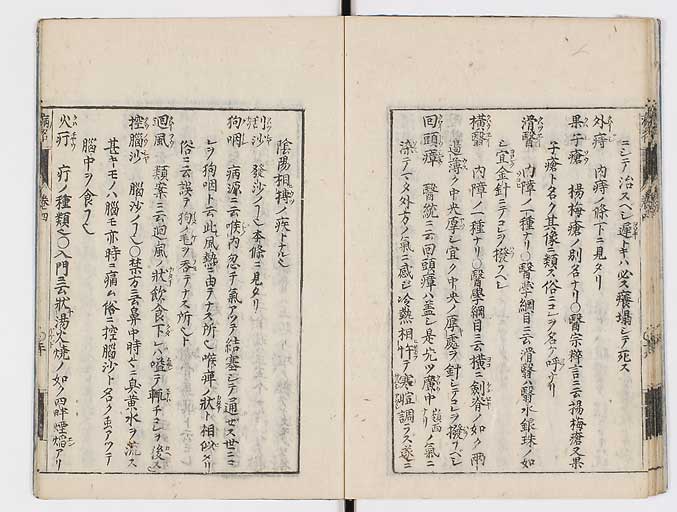 ニシテ治スヘシ遅トキハ必ス癢塌シテ死ス
外痔 内痔ノ條下ニ見タリ
果子瘡 楊梅瘡ノ別名ナリ〇醫宗粹言ニ云楊梅瘡又果
子瘡ト名ク其像ニ類ス俗ニコレヲ名ケ呼ナリ
滑翳 内障ノ一種ナリ〇醫學綱目ニ云滑翳ハ翳水銀珠ノ如
シ宜金針ニテコレヲ撥フヘシ
横翳 内障ノ一種ナリ〇醫學綱目ニ云横ニ劔脊ノ如ク兩
邉薄ク中央厚シ宜ク中央ノ厚處ヲ針シテコレヲ撥フベシ
回頭瘴 醫統ニ云回頭瘴ハ蓋シ是先ツ廣中ナリ嶺西ノ氣ニ
染テ一タヒ外方ノ氣ニ感シ冷熱相忤テ寒暄調ラス遂ニ
陰陽相搏ノ疾トナル也
沙 發沙ノ 本條ニ見タリ
狗咽 病源ニ云喉内忽チ氣アツテ結塞シテ通セス世ニコ
レヲ狗咽ト云此風熱ニ由テナス所也喉痺ノ狀ト相似タリ
俗ニ云誤テ狗ノ毛ヲ呑テナス所也ト
迴風 類案ニ云迴風ノ狀飲食下レハ嗌テ輒チコレヲ後ス
控腦沙 腦沙ノ 〇禁方ニ云鼻中時トシテ臭黄水ヲ流ス
甚キモノハ腦モ亦時ニ痛ム俗ニ控腦沙ト名ク虫アツテ
腦中ヲ食フ也
火疔 疔ノ種類也〇入門ニ云狀湯火燒ノ如ク四畔煙焔アリ
卷四